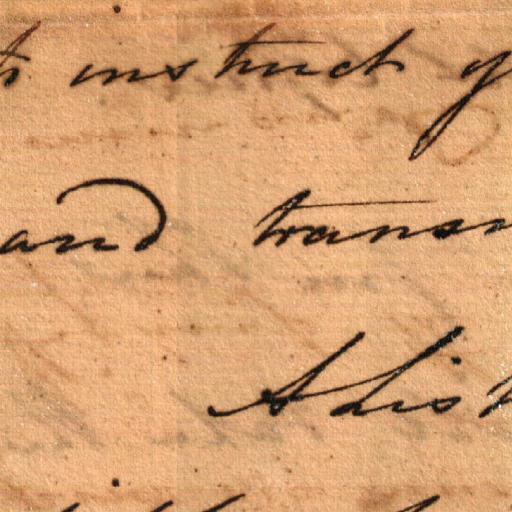 to instruct y
and transm
A list